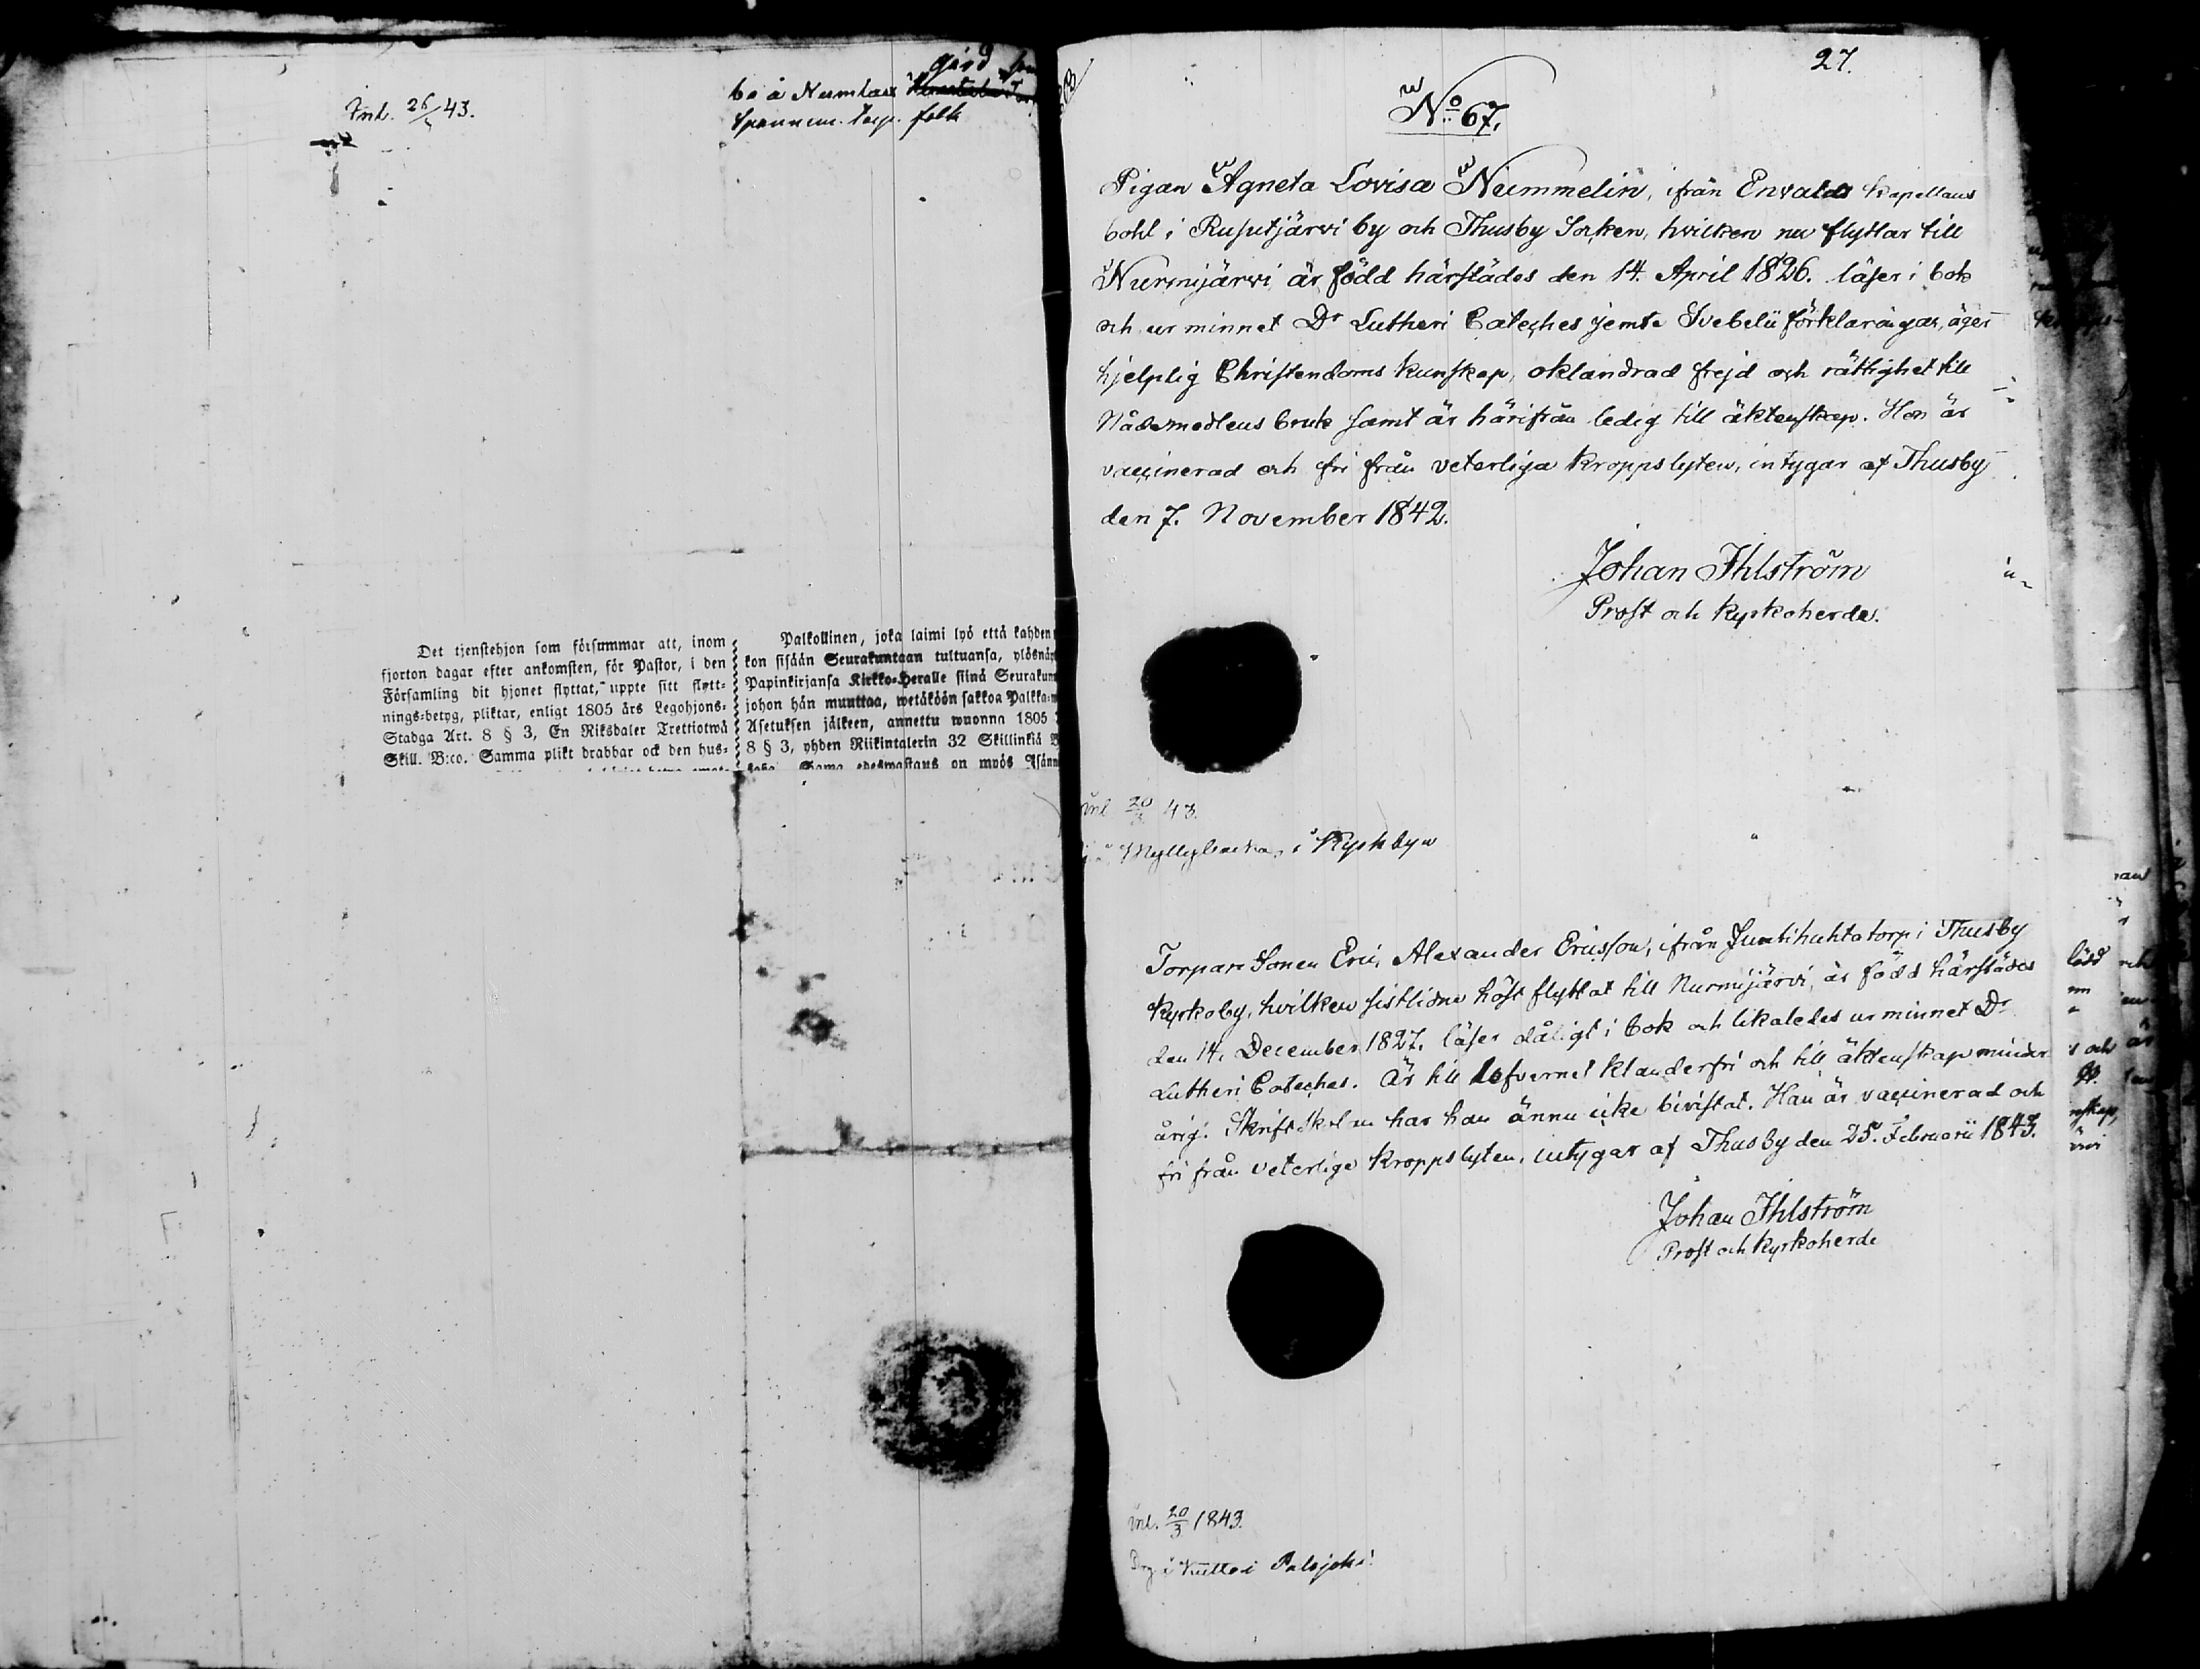 Inl. 26/ 43.
gård
bo å Numlax
folk
Det tjenstehjon som försummar att, inom
fjorton dagar efter ankomsten, för Pastor, i den
Församling dit hjonet flyttat, uppte sitt flytt-
nings-betyg, pliktar, enligt 1805 års Legohjons-
Stadga Art. 8 § 3, En Riksdaler Trettiotwå
Skill. B:co. Samma plikt drabbar ock den hus-
Palkollinen, joka laimi lyö että kahden
kon sisään Seurakuntaan tultuansa, ylösnäy
Papinkirjansa Kirkko-Heralle siinä Seurakun
johon hän muuttaa, wetäköön sakkoa Palkka-
Asetuksen jälkeen, annettu wuonna 1805
8 § 3, yhden Riikintalerin 32 Skillinkiä B
Sama edeswastaus on myös Isänn
27.
No 67.
Pigan Agneta Lovisa Nummelin, ifrån Envalds kapellans
bohl i Rusutjärvi by och Thusby Socken, hvilken nu flyttar till
Nurmijärvi är född härstädes den 14. April 1826. läser i bok
och ur minnet Dr Lutheri Cateches jemte Svebelii förklaringar, äger
hjelplig Christendoms kunskap, oklandrad frejd och rättighet till
Nådemedlens bruk samt är härifrån ledig till äktenskap. Hon är
vaccinerad och fri från veterliga kroppslyten, intygar af Thusby
den 7. November 1842.
Johan Ihlström
Prost och Kyrkoherde.
inl 20/3 43.
i Kyrkbyn
Torpare Sonen Eric Alexander Ericsson, ifrån Juntihuhta torp i Thusby
Kyrkoby, hvilken sistlidne höst flyttat till Nurmijärvi, är född härstädes
den 14. December 1827. läser dåligt i bok och likaledes ur minnet Dr
Lutheri Cateches. Är till lefvernet klanderfri och till äktenskap minder
årig. Skriftskolan har han ännu icke bivistat. Han är vaccinerad och
fri från veterliga kroppslyten, intygar af Thusby den 25. Februarii 1843.
Johan Ihlström
Prost och Kyrkoherde
inl. 20/3 1843.
Palojoki